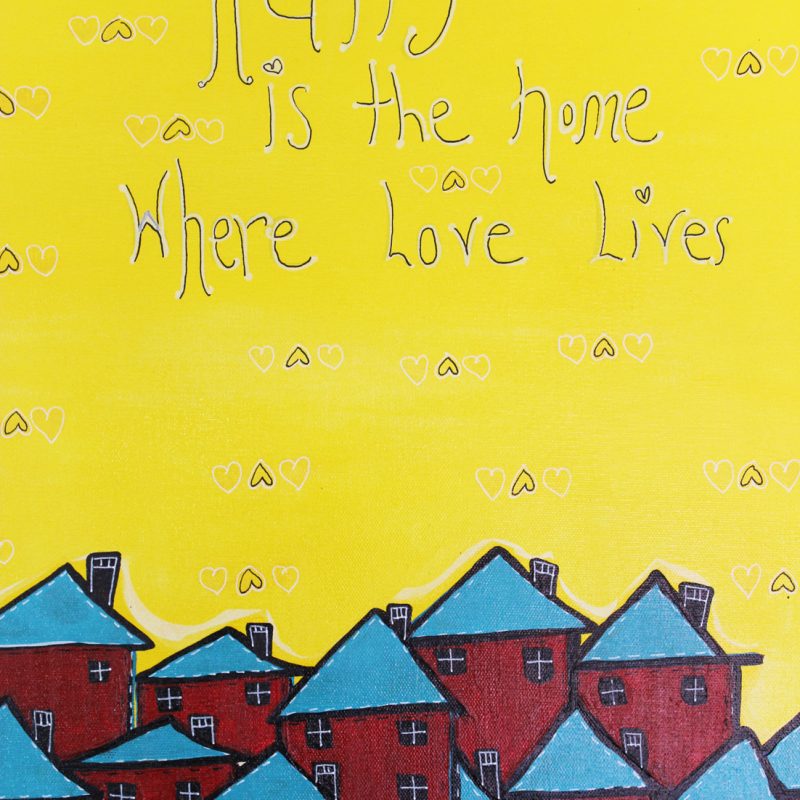 is the home
Where Love Lives